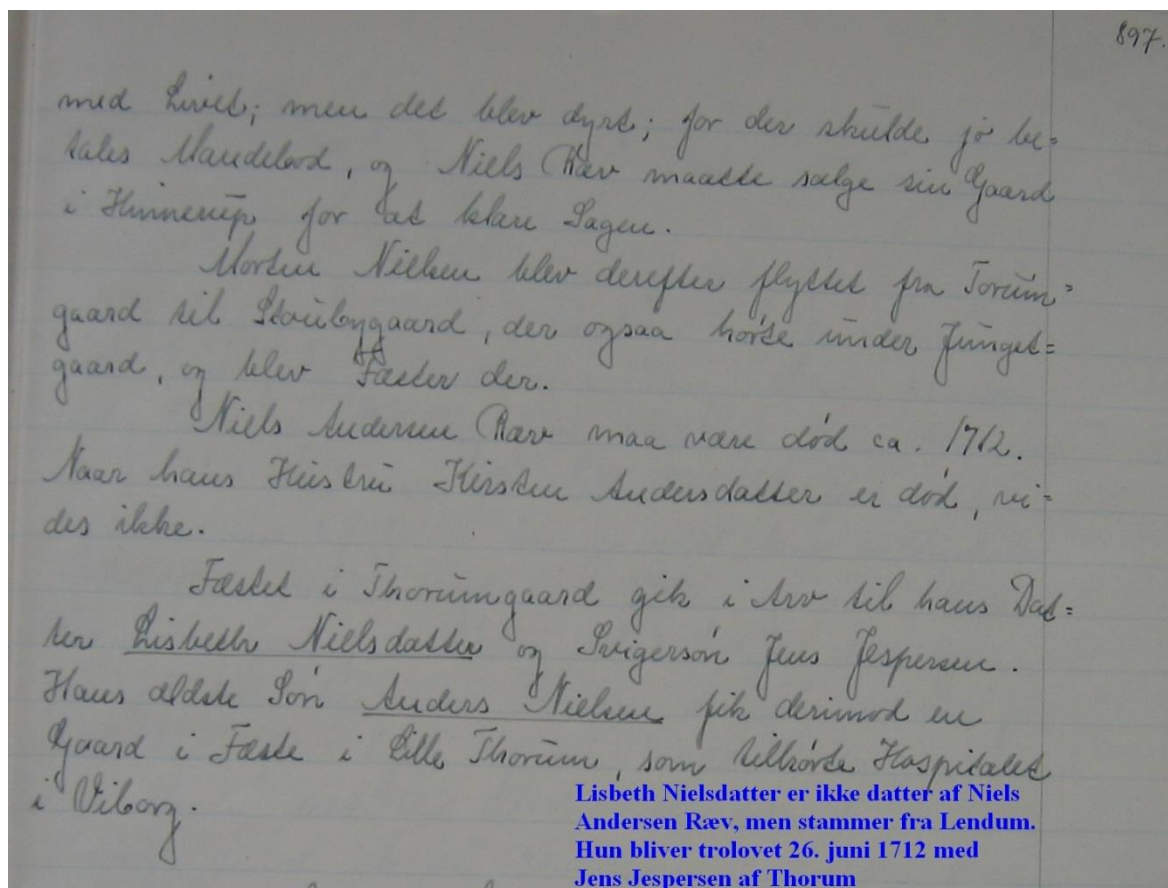 897.
med Livet; men det blev dyrt; for der skulde jo be=
tales Mandebod, og Niels Ræv maatte sælge sin Gaard
i Hinnerup for at klare Sagen.
Morten Nielsen blev derefter flyttet fra Torum=
gaard til Stoubygaard, der ogsaa hørte under Junget=
gaard, og blev Fæster der.
Niels Andersen Ræv maa være død ca. 1712.
Naar hans Hustru Kirsten Andersdatter er død, vi=
des ikke.
Fæstet i Thorumgaard gik i Arv til hans Dat=
ter Lisbeth Nielsdatter og Svigersøn Jens Jespersen.
Hans ældste Søn Anders Nielsen fik derimod en
Gaard i Fæste i Lille Thorum, som tilhørte Hospitalet
i Viborg.
Lisbeth Nielsdatter er ikke datter af Niels
Andersen Ræv, men stammer fra Lendum.
Hun bliver trolovet 26. juni 1712 med
Jens Jespersen af Thorum